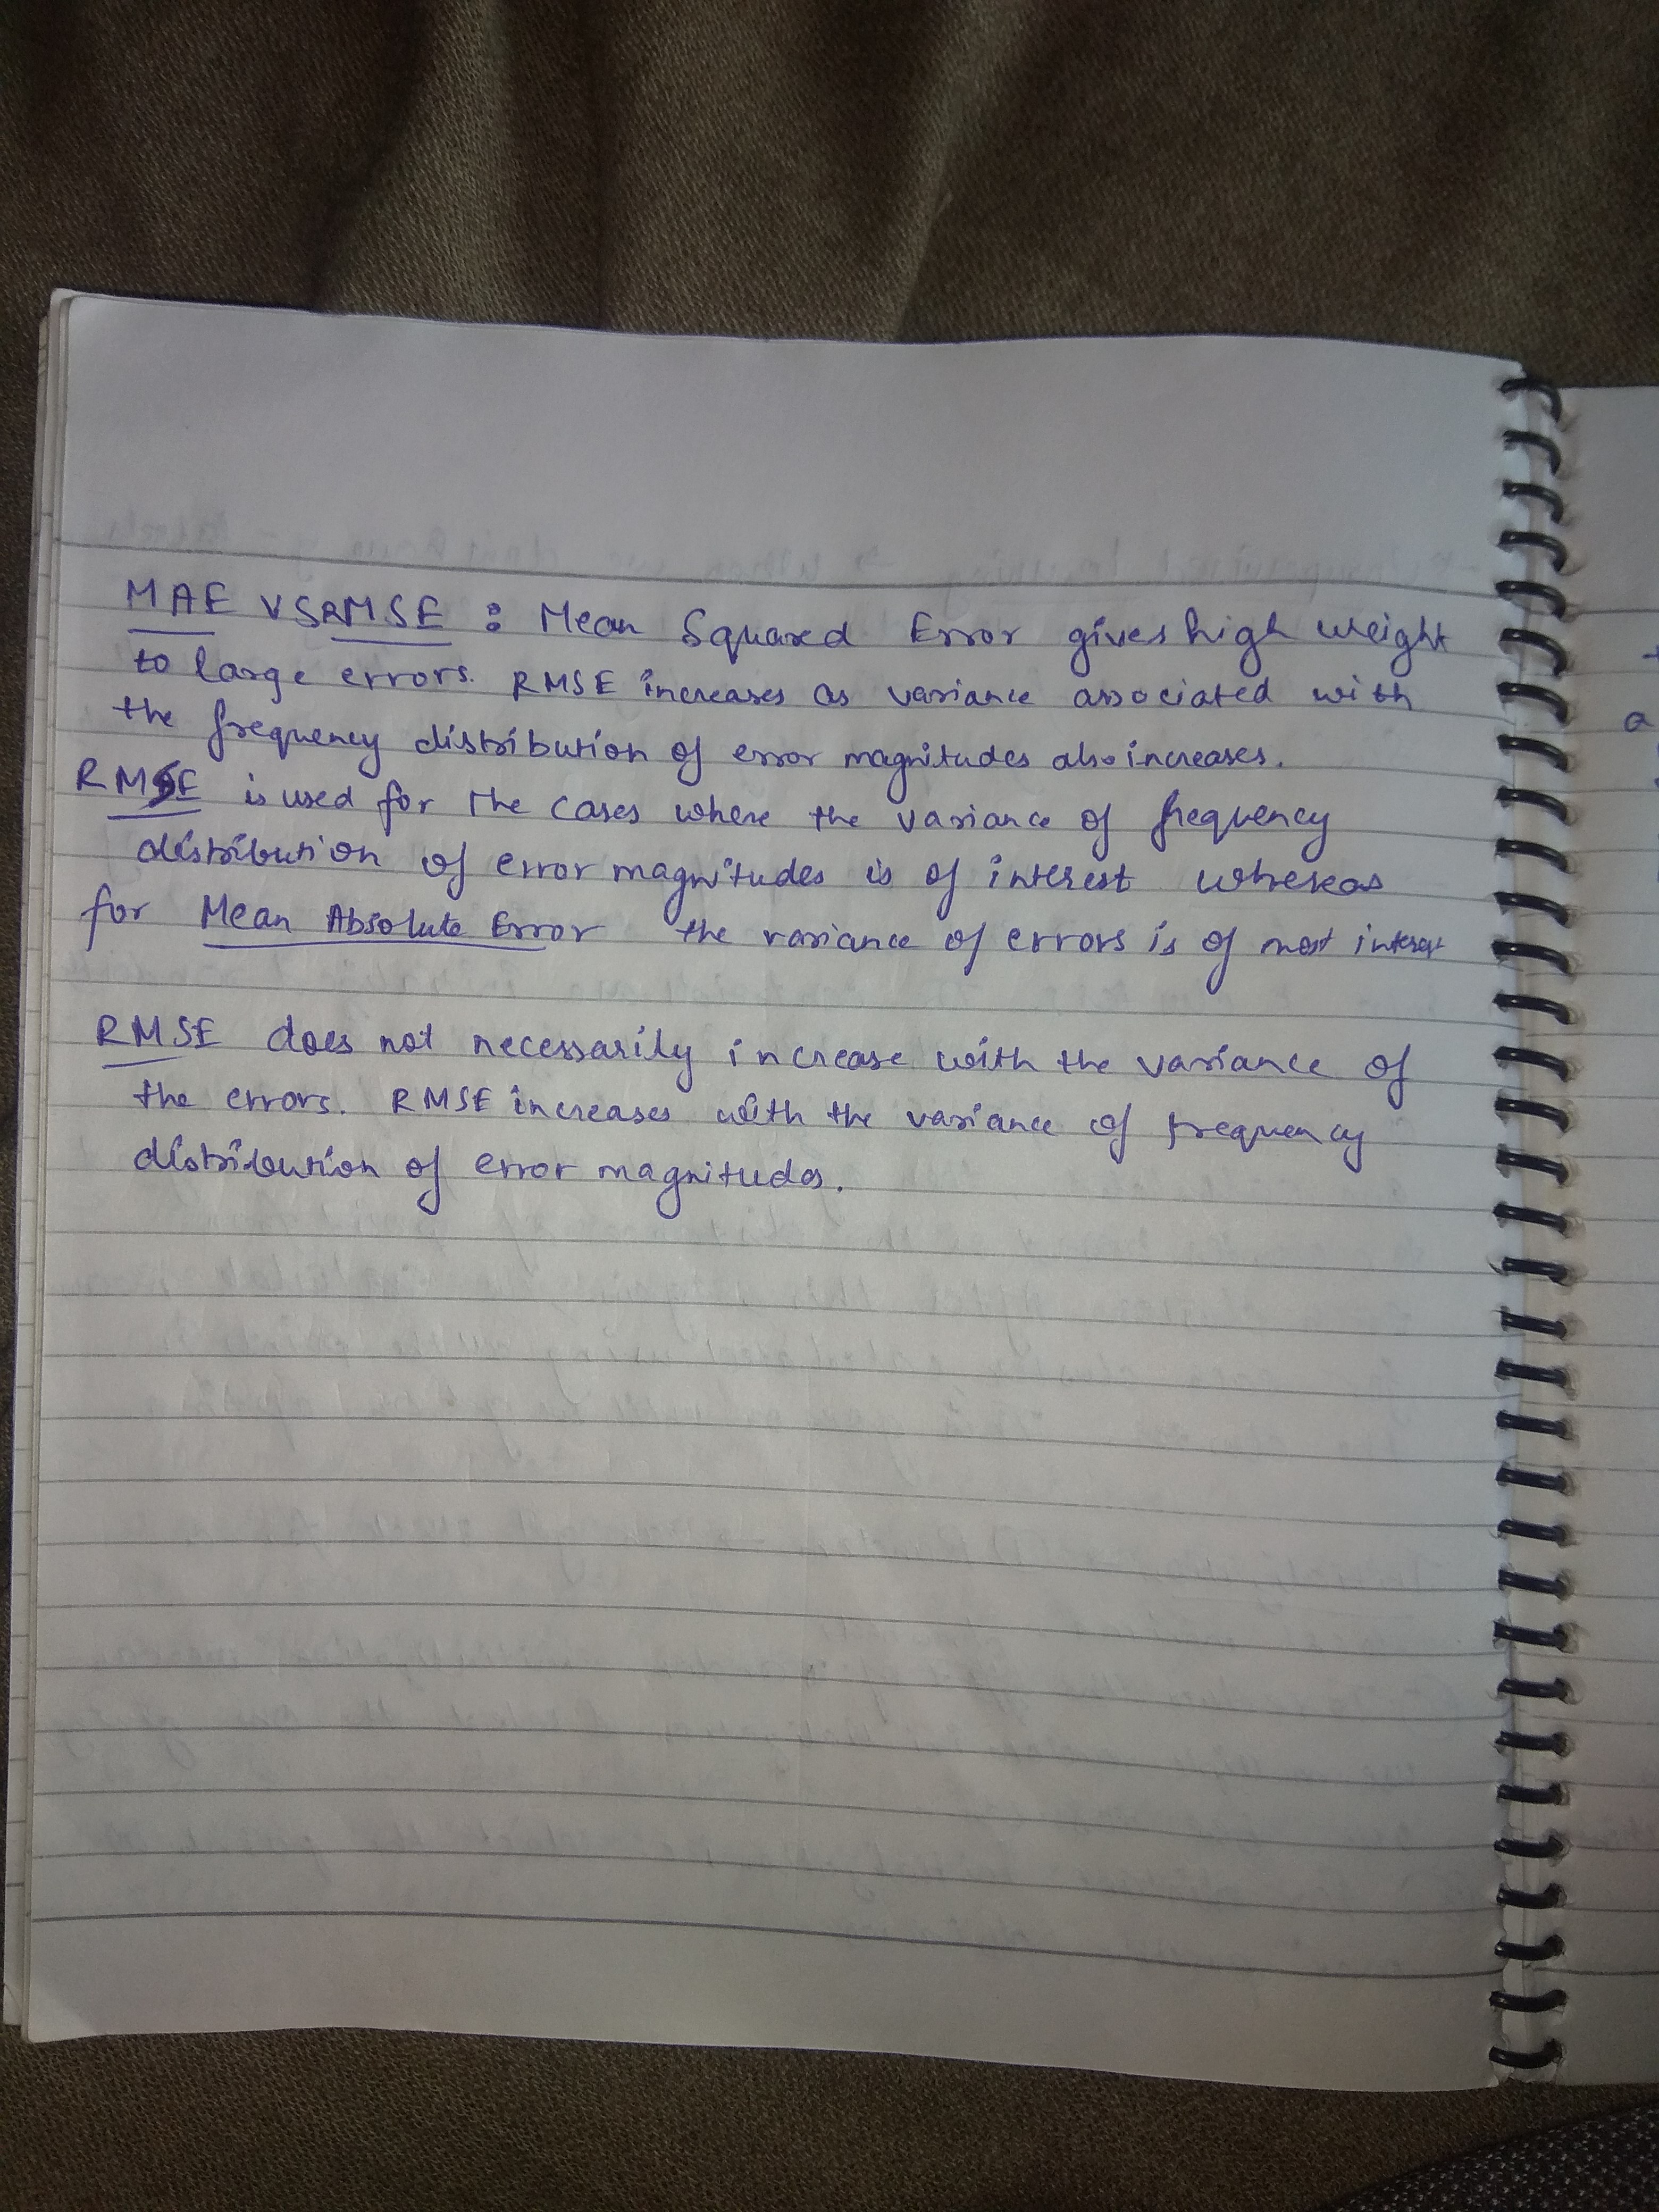 MAE VS RMSE : Mean Squared Error gives high weight
to large errors. RMSE increases as variance associated with
the frequency distribution of error magnitudes also increases.
RMSE is used for the cases where the variance of frequency
distribution of error magnitudes is of interest whereas
for Mean Absolute Error the variance of errors is of most interest
RMSE does not necessarily increase with the variance of
the errors. RMSE increases with the variance of frequency
distribution of error magnitudes.